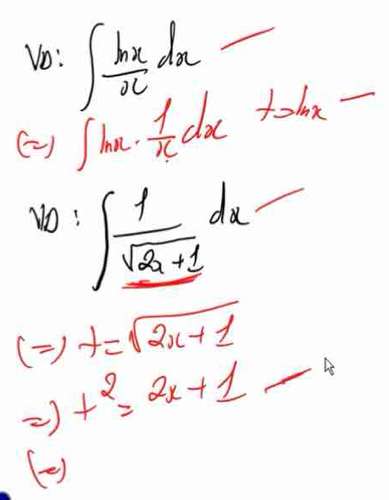 VD: ∫ lnx/x dx
(=) ∫ lnx · 1/x dx t=lnx
VD: ∫ 1/√(2x+1) dx
(=) t=√(2x+1)
=) t² = 2x+1
(=)